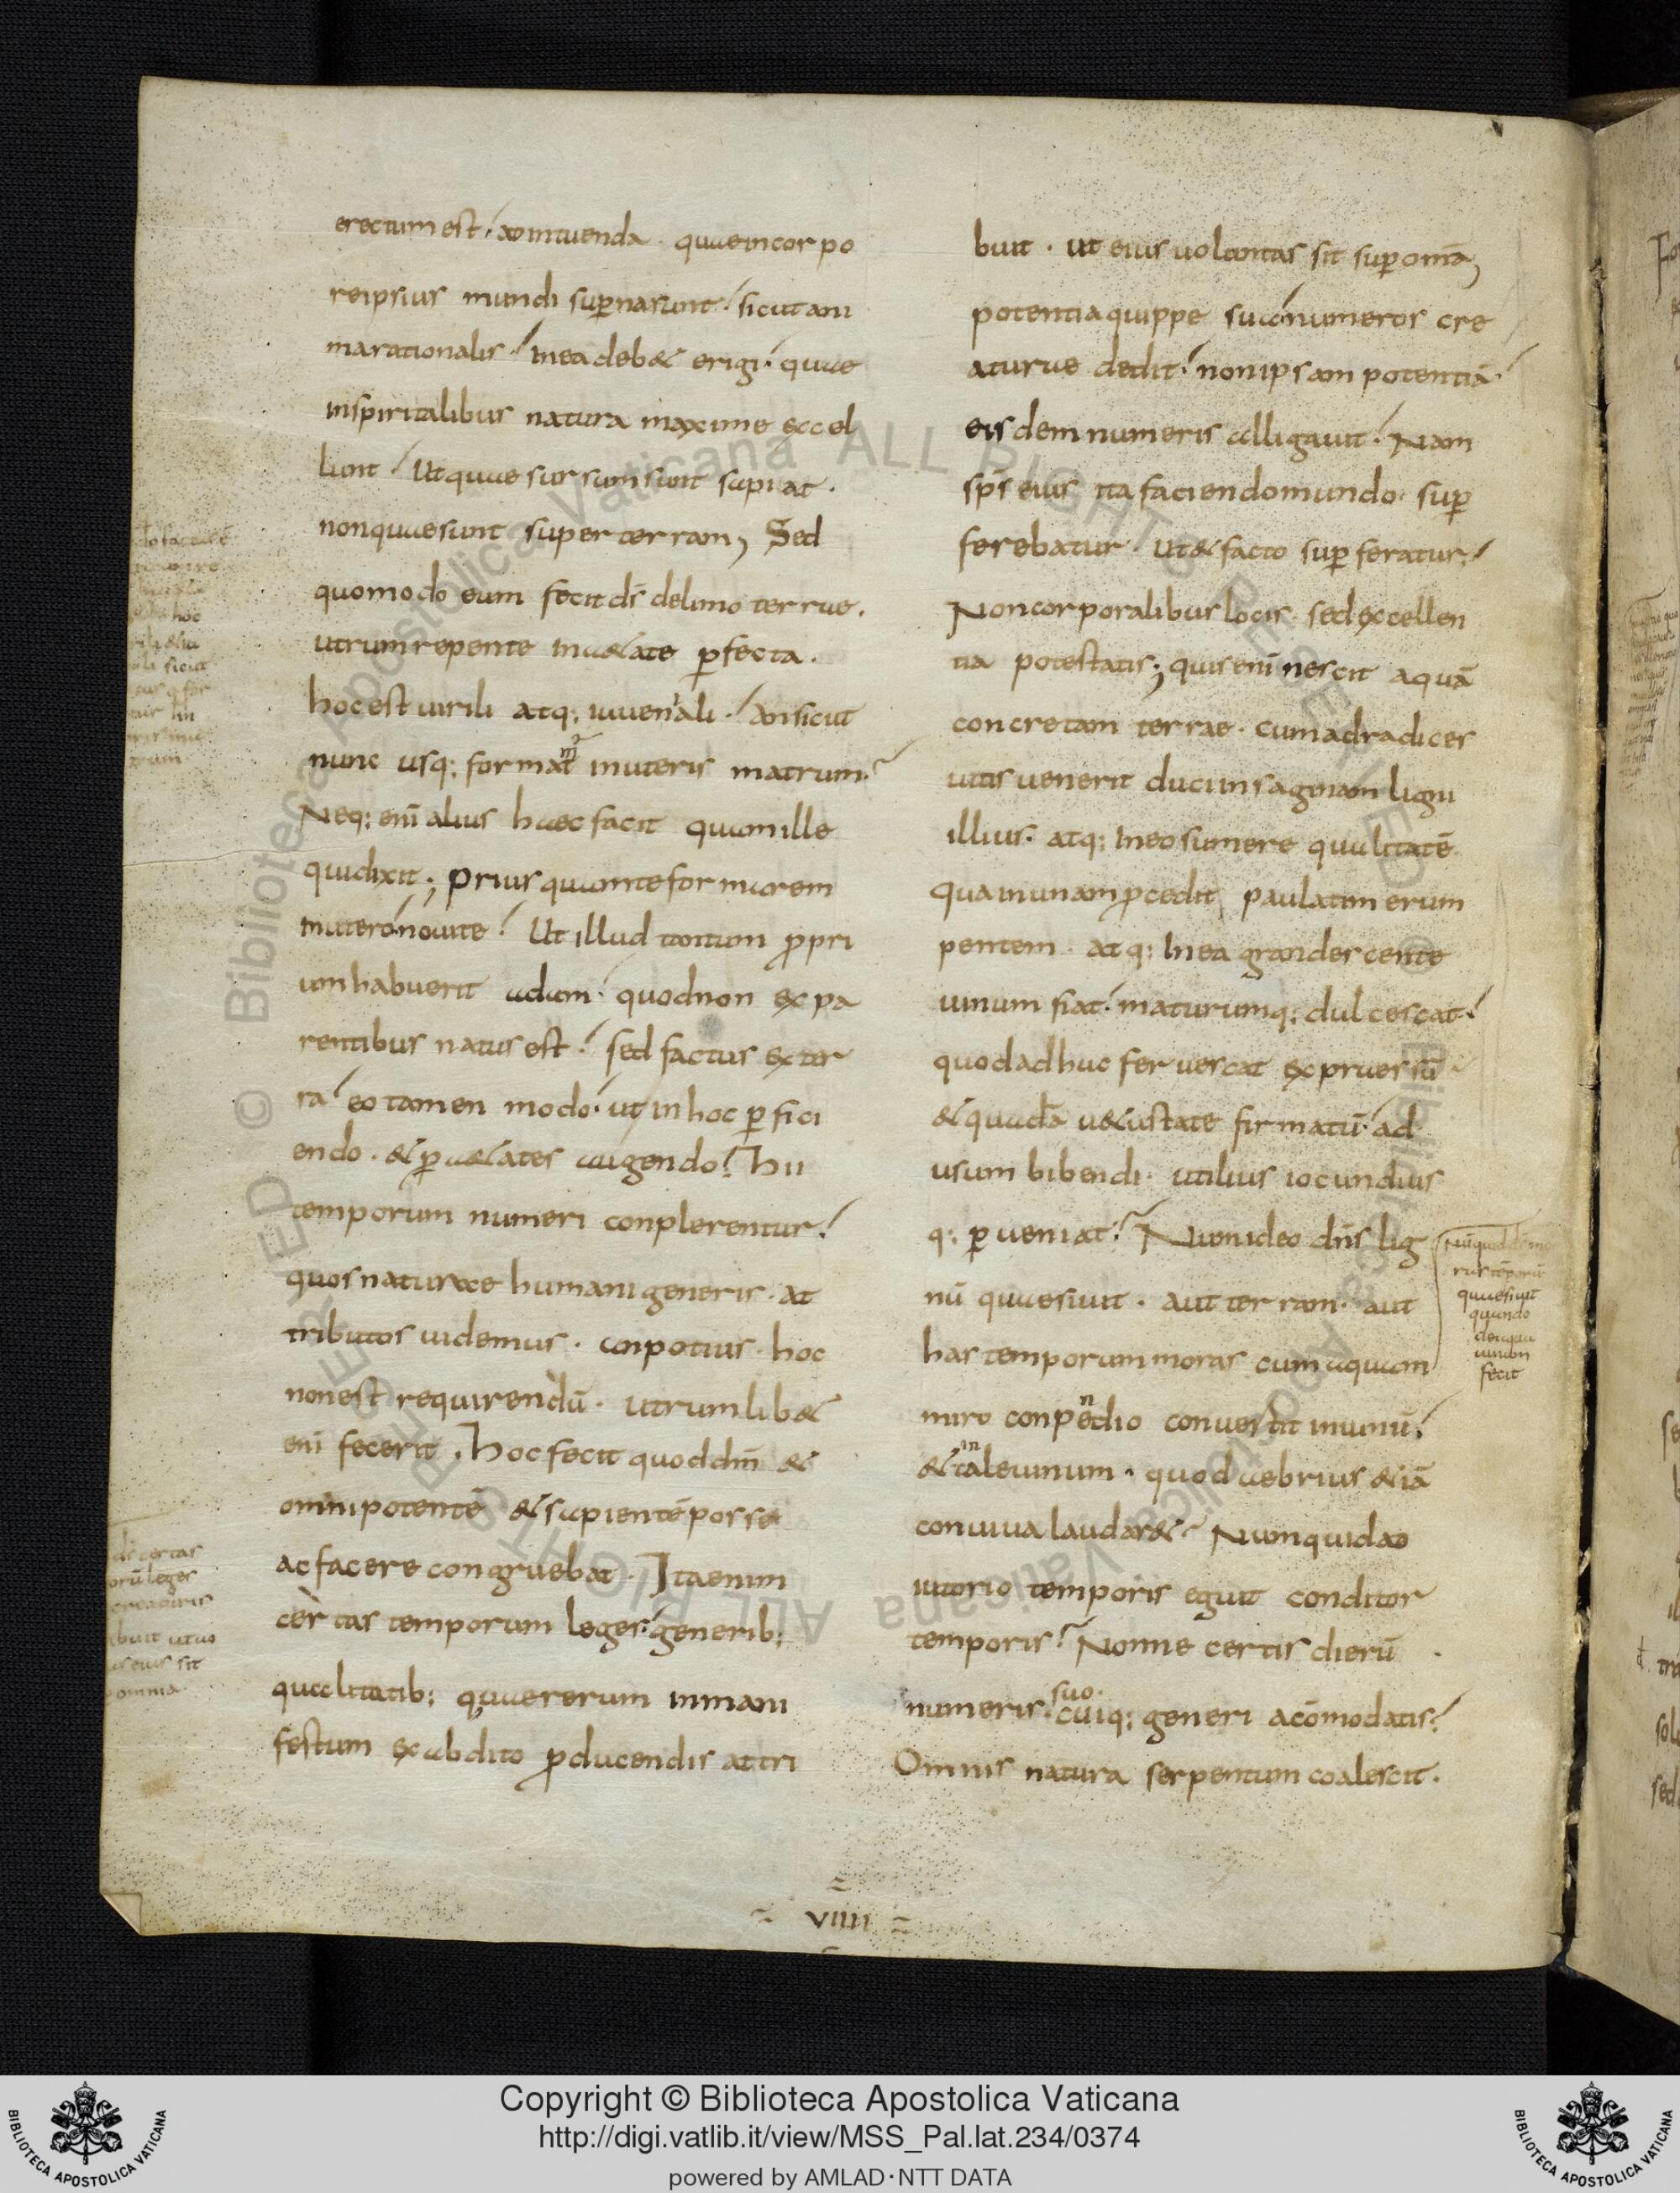 erectum est. ad intuenda quae in corpo
re ipsius mundi superna sunt. sicut ani
ma rationalis. in ea deb& erigi. quae
in spiritalibus natura maxime excel
lunt. Ut quae sursum sunt sapiat.
non quae sunt super terram, Sed
quomodo eum fecit ds̄ de limo terrae.
utrum repente in aetate ꝑfecta.
hoc est uirili atq; iuuenali. an sicut
nunc usq; format in uteris matrum.
Neq; enī alius haec facit quam ille
qui dixit; Prius quam te formarem
in utero noui te. Ut illud tantum ꝓpri
um habuerit adam. quod non ex pa
rentibus natus est. sed factus ex ter
ra eo tamen modo. ut in hoc ꝑfici
endo. & ꝑ aetates augendo. hii
temporum numeri conplerentur.
quos naturae humani generis. at
tributos uidemus. an potius hoc
non est requirendū. utrum lib&
enī fecerit. hoc fecit quod dm̄ &
omnipotentē & sapientē posse
ac facere congruebat. Ita enim
certas temporum leges. generib;
qualitatib; quae rerum in mani
festum ex abdito ꝓducendis attri
buit. ut eius uoluntas sit suꝑ omīa,
potentia quippe sua numeros cre
aturae dedit. non ipsam potentiā.
eisdem numeris alligauit. Nam
sp̄s eius ita faciendo mundo. suꝑ
ferebatur. ut & facto suꝑ feratur.
Non corporalibus locis. sed excellen
tia potestatis; quis enī nescit aquā
concretam terrae. cum ad radices
uitis uenerit duci in saginam ligni
illius. atq; in eo sumere qualitatē
qua in unam ꝓcedit paulatim erum
pentem. atq; in ea grandescente
uinum fiat. maturumq; dulcescat.
quod adhuc feruescat expressū
& quadā uetustate firmatū. ad
usum bibendi. utilius iocundius
q; ꝑueniat. Num ideo dn̄s lig
nū quaesiuit. aut terram. aut
has temporum moras cum aquam
miro conpendio conuertit in uinū.
& tale uinum. quod aebrius & iā
conuiua laudar&. Numquid ad
iutorio temporis eguit conditor
temporis. Nonne certis dierū
numeris. suo cuiq; generi acōmodatis.
Omnis natura serpentum coalescit.
rus tēporū
quaesiuit
quando
de aqua
uinum
fecit
certas
leges
creaturis
sit
omnia
VIIII
Copyright © Biblioteca Apostolica Vaticana
http://digi.vatlib.it/view/MSS_Pal.lat.234/0374
powered by AMLAD·NTT DATA
BIBLIOTECA APOSTOLICA VATICANA
BIBLIOTECA APOSTOLICA VATICANA